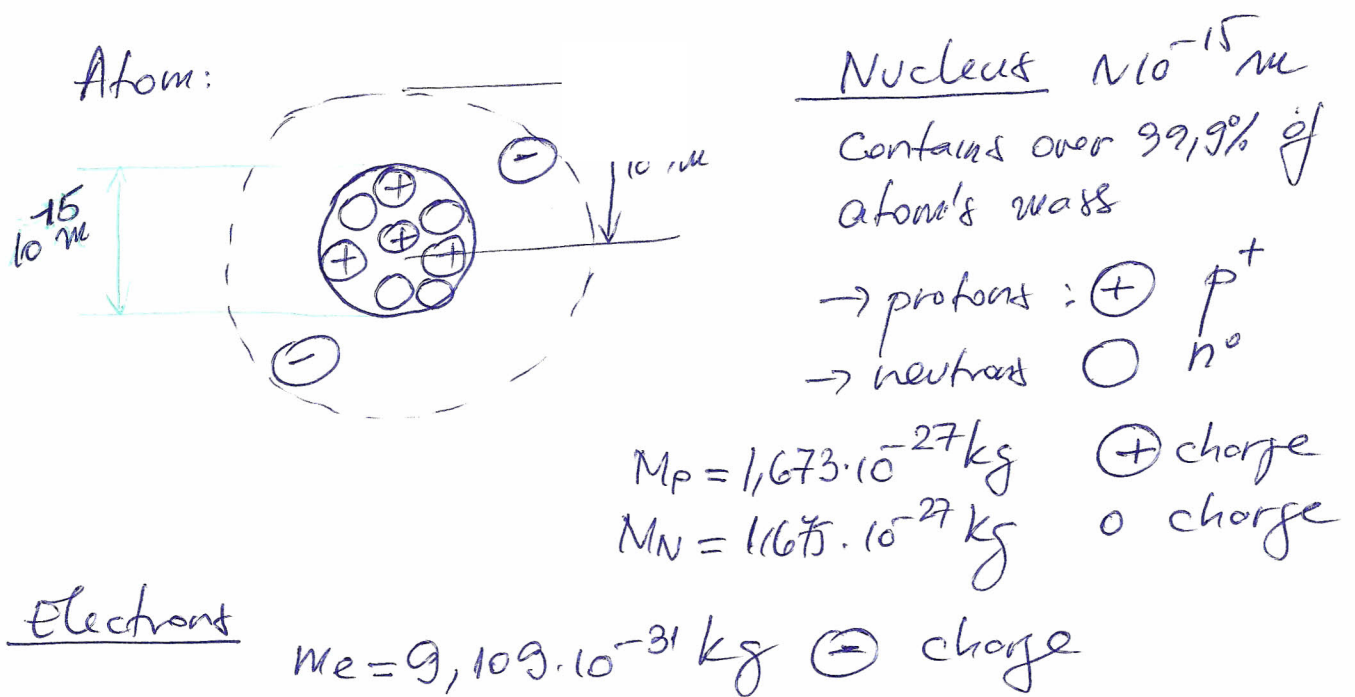 Atom:
Nucleus ~10⁻¹⁵ m
Contains over 99,9% of
atom's mass
10⁻¹⁵ m
10 m
→ protons : ⊕ p⁺
→ neutrons ○ n⁰
Mp = 1,673·10⁻²⁷ kg ⊕ charge
MN = 1,675·10⁻²⁷ kg 0 charge
Electrons
me = 9,109·10⁻³¹ kg ⊖ charge